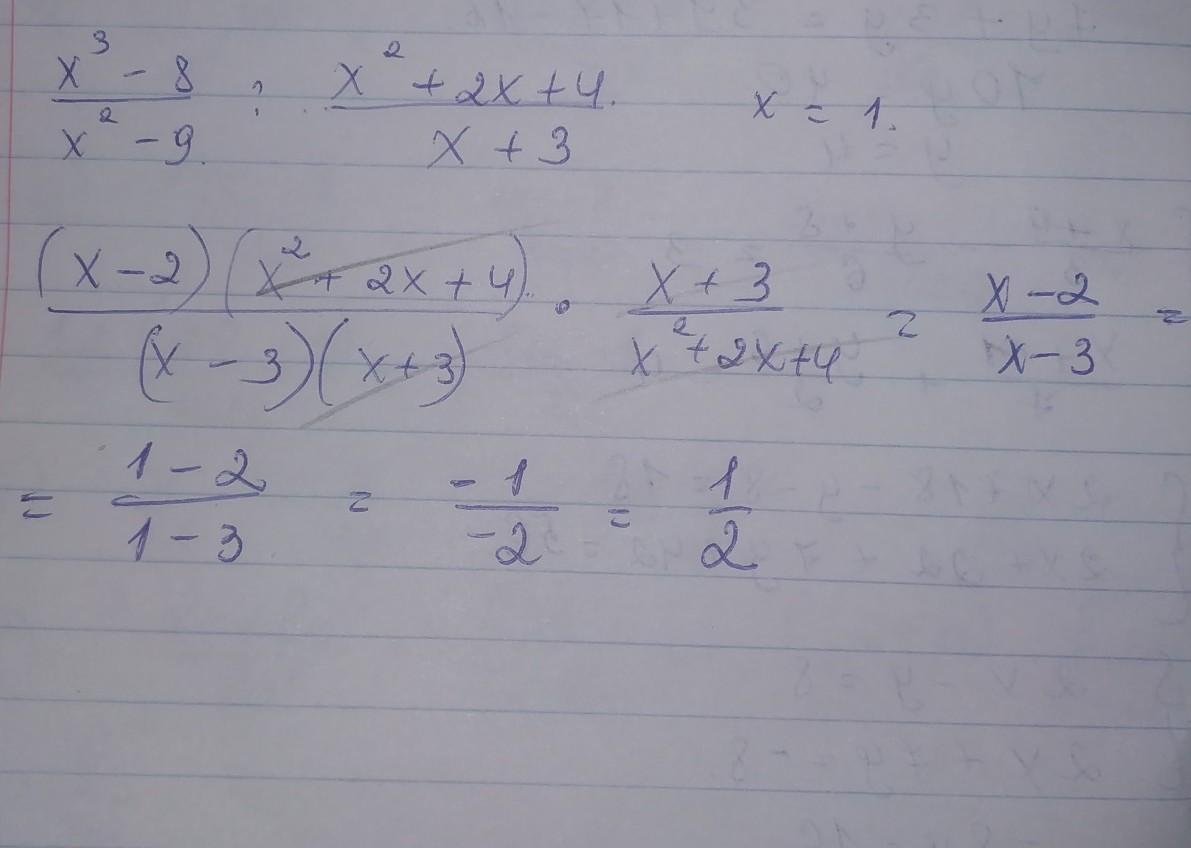 x³ - 8 / x² - 9 : x² + 2x + 4 / x + 3 x = 1.
(x - 2)(x² + 2x + 4) / (x - 3)(x + 3) · x + 3 / x² + 2x + 4 = x - 2 / x - 3 =
= 1 - 2 / 1 - 3 = -1 / -2 = 1 / 2